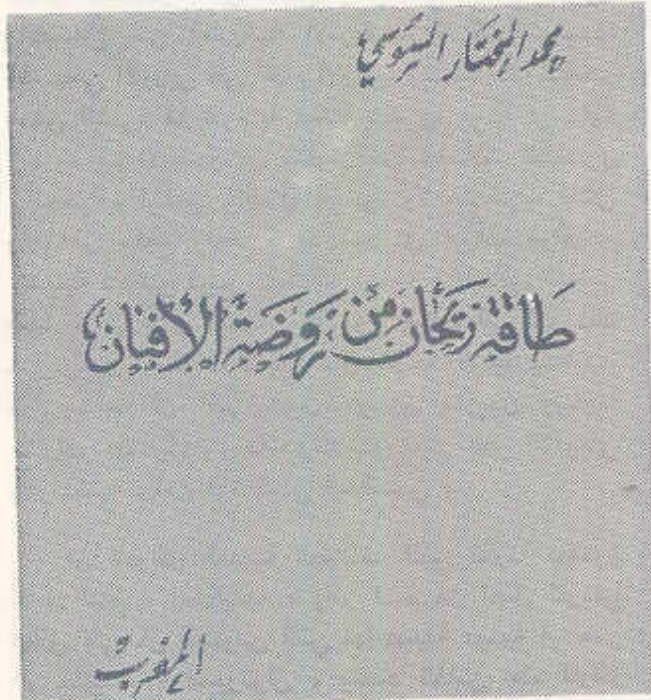 محمد المختار السّوسي
طاقة ريحان من روضة الأفنان
المغرب